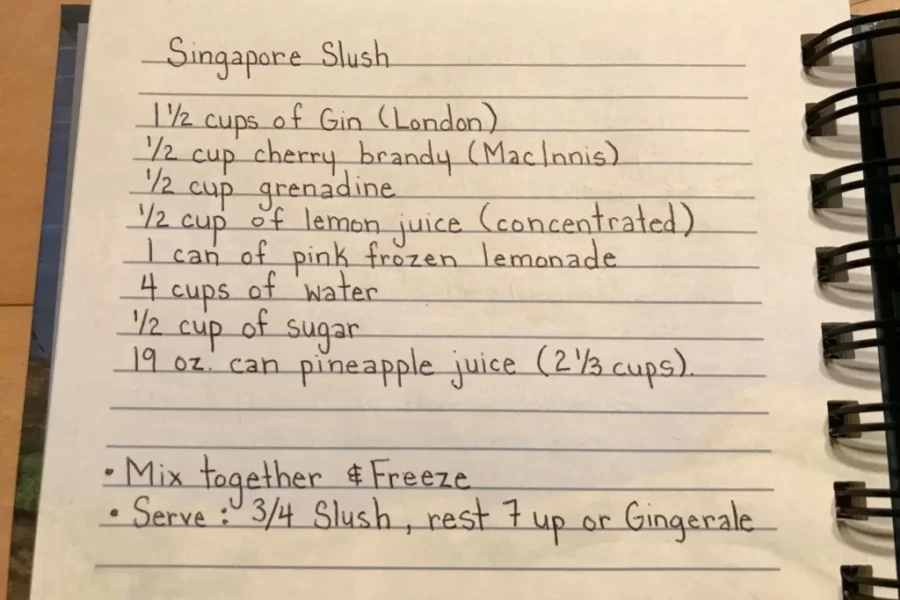 Singapore Slush
1 1/2 cups of Gin (London)
1/2 cup cherry brandy (MacInnis)
1/2 cup grenadine
1/2 cup of lemon juice (concentrated)
1 can of pink frozen lemonade
4 cups of water
1/2 cup of sugar
19 oz. can pineapple juice (2 1/3 cups).
• Mix together & Freeze
• Serve : 3/4 Slush, rest 7 up or Gingerale